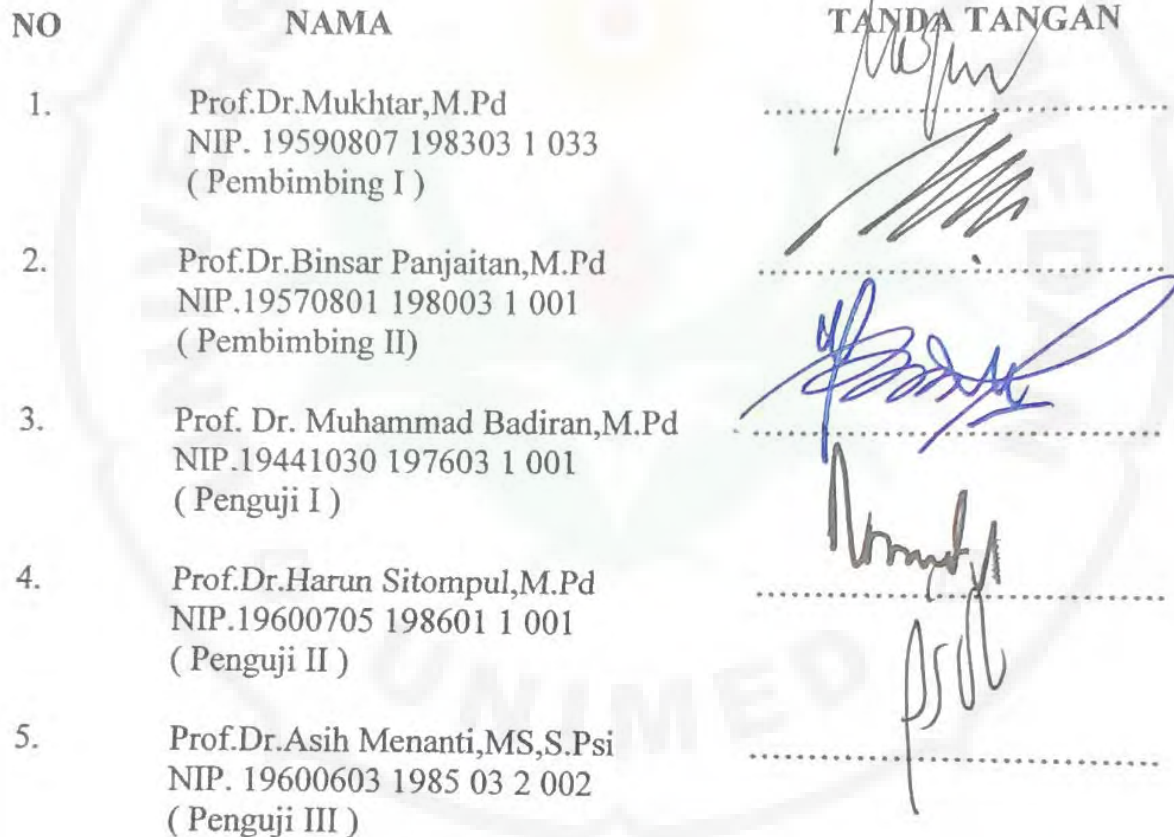 NO NAMA TANDA TANGAN
1. Prof.Dr.Mukhtar,M.Pd ........................................
NIP. 19590807 198303 1 033
( Pembimbing I )
2. Prof.Dr.Binsar Panjaitan,M.Pd ........................................
NIP.19570801 198003 1 001
( Pembimbing II)
3. Prof. Dr. Muhammad Badiran,M.Pd ........................................
NIP.19441030 197603 1 001
( Penguji I )
4. Prof.Dr.Harun Sitompul,M.Pd ........................................
NIP.19600705 198601 1 001
( Penguji II )
UNIMED
5. Prof.Dr.Asih Menanti,MS,S.Psi ........................................
NIP. 19600603 1985 03 2 002
( Penguji III )